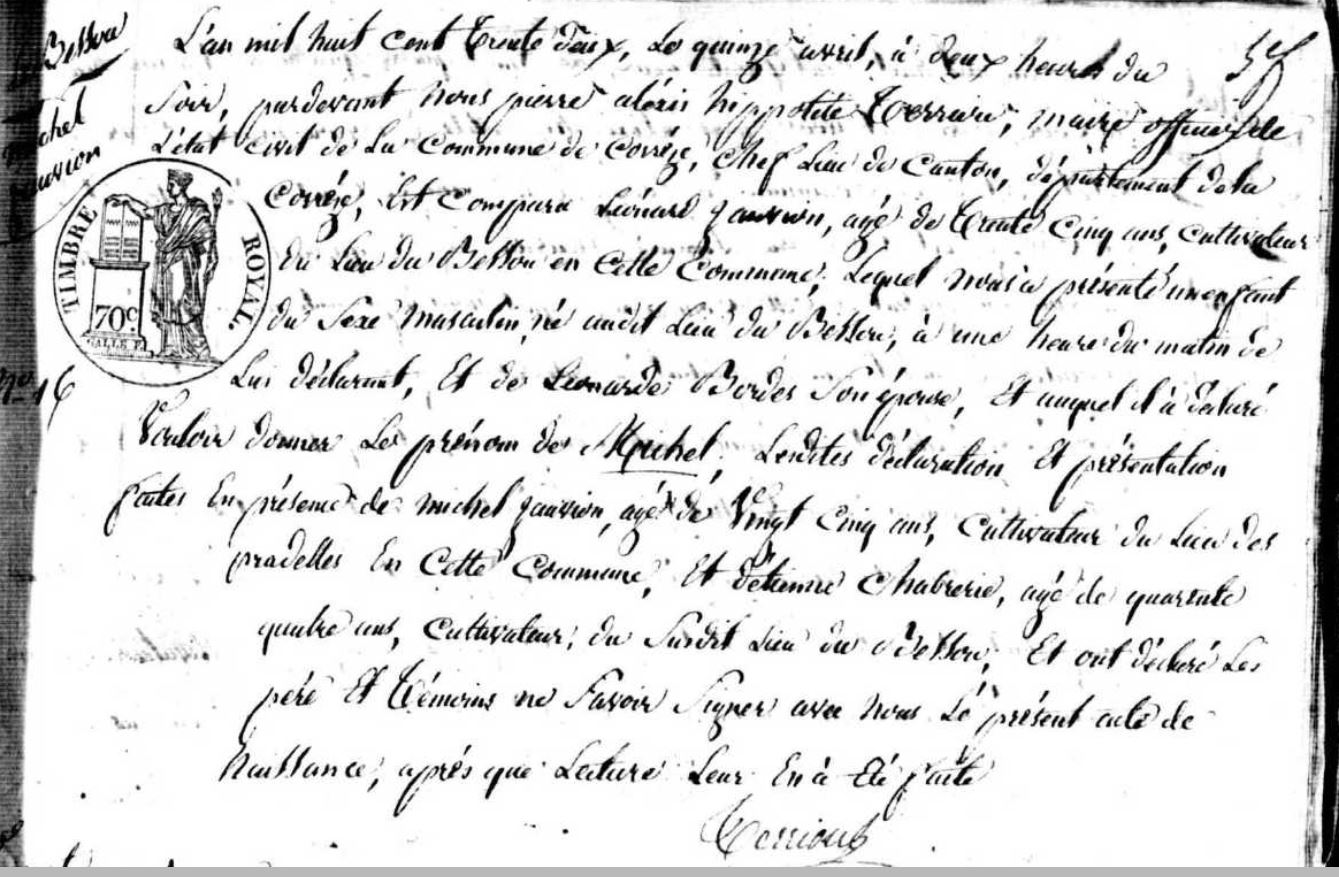 Besson
Michel
Jauvion
n.º 16
TIMBRE ROYAL.
70c
L'an mil huit cent trente deux, le quinze avril, à deux heures du
soir, pardevant nous pierre alexis hippolite, maire officier de
l'état civil de la commune de Corrèze, chef lieu de Canton, département de la
Corrèze, Est comparu Léonard Jauvion, agé de trente cinq ans, cultivateur
du lieu du Besson en cette commune, lequel nous a présenté un enfant
du sexe masculin, né audit lieu du Besson, à une heure du matin de
lui déclarant, Et de Léonarde Bordes son épouse, Et auquel il à déclaré
vouloir donner le prénom de Michel, lesdites déclaration Et présentation
faites En présence de michel Jauvion, agé de vingt cinq ans, cultivateur du lieu des
pradelles En cette commune, Et d'étienne Chabrerie, agé de quarante
quatre ans, cultivateur, du susdit lieu du Besson, Et ont déclaré les
père Et témoins ne savoir signer avec nous le présent acte de
naissance, après que lecture leur En à été faite